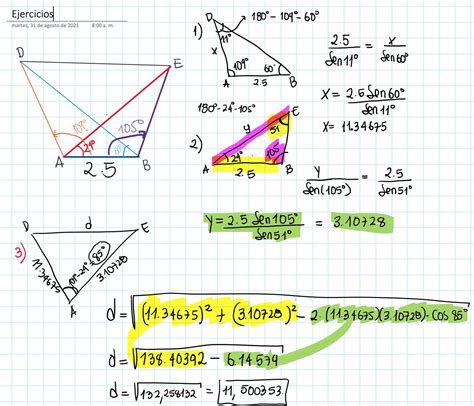 Ejercicios
martes, 31 de agosto de 2021 8:00 a. m.
D
E
109°
24°
105°
A
B
2.5
1)
D
180°-109°-60°
11°
x
109°
60°
A
2.5
B
2.5 / Sen11° = x / Sen60°
x = 2.5 Sen60° / Sen11°
x = 11.34675
180°-24°-105°
2)
E
51
y
A
24°
105
B
2.5
y / Sen(105°) = 2.5 / Sen51°
y = 2.5 Sen105° / Sen51° = 3.10728
3)
D
d
E
11.34675
109°-24°=85°
3.10728
A
d = √(11.34675)² + (3.10728)² - 2.(11.34675)(3.10728).cos85°
d = √138.40392 - 6.14574
d = √132,258132 = 11,500353